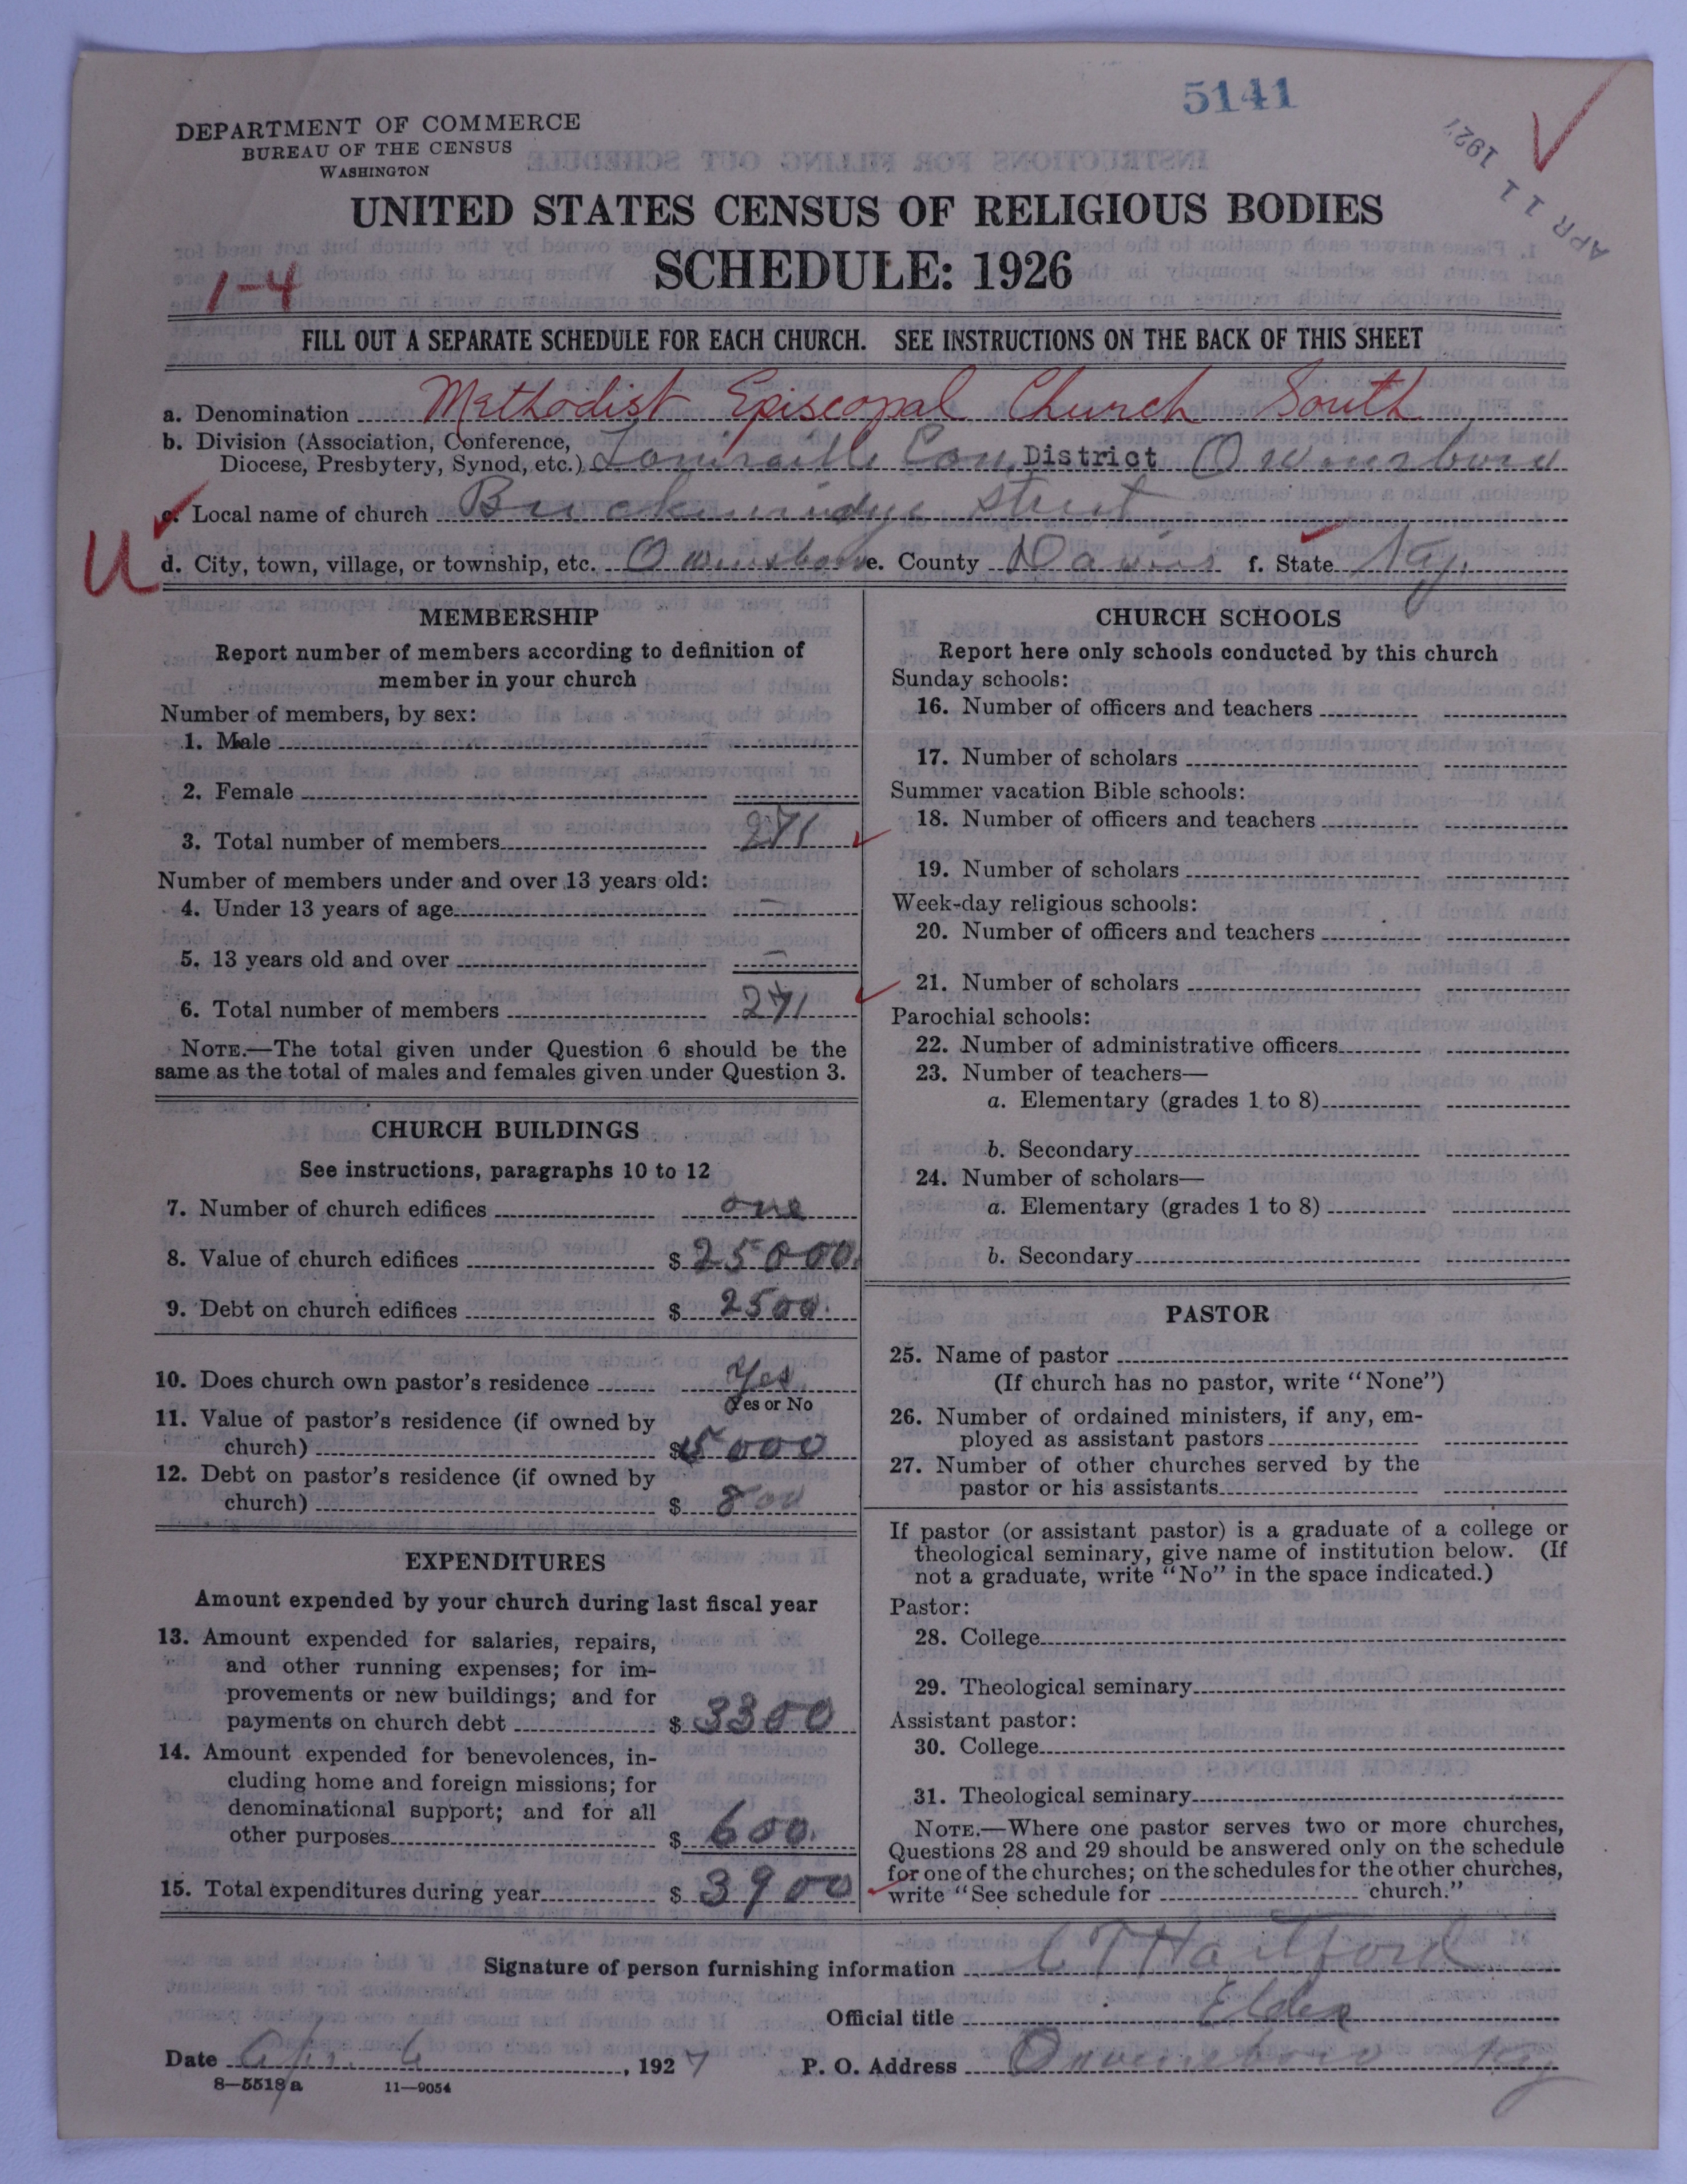 5141
APR 11 1927
DEPARTMENT OF COMMERCE
BUREAU OF THE CENSUS
WASHINGTON
UNITED STATES CENSUS OF RELIGIOUS BODIES
SCHEDULE: 1926
1-4
FILL OUT A SEPARATE SCHEDULE FOR EACH CHURCH. SEE INSTRUCTIONS ON THE BACK OF THIS SHEET
a. Denomination Methodist Episcopal Church South
b. Division (Association, Conference,
Diocese, Presbytery, Synod, etc.) Louisville Con. District Owensboro
c. Local name of church Breckenridge Street
U
d. City, town, village, or township, etc. Owensboro e. County Daviess f. State Ky.
MEMBERSHIP
Report number of members according to definition of
member in your church
Number of members, by sex:
1. Male
2. Female
3. Total number of members 271
Number of members under and over 13 years old:
4. Under 13 years of age —
5. 13 years old and over —
6. Total number of members 271
NOTE.—The total given under Question 6 should be the
same as the total of males and females given under Question 3.
CHURCH BUILDINGS
See instructions, paragraphs 10 to 12
7. Number of church edifices one
8. Value of church edifices $ 25000.
9. Debt on church edifices $ 2500.
10. Does church own pastor's residence Yes
Yes or No
11. Value of pastor's residence (if owned by
church) $ 5000
12. Debt on pastor's residence (if owned by
church) $ 800
EXPENDITURES
Amount expended by your church during last fiscal year
13. Amount expended for salaries, repairs,
and other running expenses; for im-
provements or new buildings; and for
payments on church debt $ 3300
14. Amount expended for benevolences, in-
cluding home and foreign missions; for
denominational support; and for all
other purposes $ 600.
15. Total expenditures during year $ 3900
CHURCH SCHOOLS
Report here only schools conducted by this church
Sunday schools:
16. Number of officers and teachers
17. Number of scholars
Summer vacation Bible schools:
18. Number of officers and teachers
19. Number of scholars
Week-day religious schools:
20. Number of officers and teachers
21. Number of scholars
Parochial schools:
22. Number of administrative officers
23. Number of teachers—
a. Elementary (grades 1 to 8)
b. Secondary
24. Number of scholars—
a. Elementary (grades 1 to 8)
b. Secondary
PASTOR
25. Name of pastor
(If church has no pastor, write "None")
26. Number of ordained ministers, if any, em-
ployed as assistant pastors
27. Number of other churches served by the
pastor or his assistants
If pastor (or assistant pastor) is a graduate of a college or
theological seminary, give name of institution below. (If
not a graduate, write "No" in the space indicated.)
Pastor:
28. College
29. Theological seminary
Assistant pastor:
30. College
31. Theological seminary
NOTE.—Where one pastor serves two or more churches,
Questions 28 and 29 should be answered only on the schedule
for one of the churches; on the schedules for the other churches,
write "See schedule for church."
Signature of person furnishing information C T Hartford
Official title Elder
Date Apr. 6, 1927 P. O. Address Owensboro Ky
8—5518a 11—9054